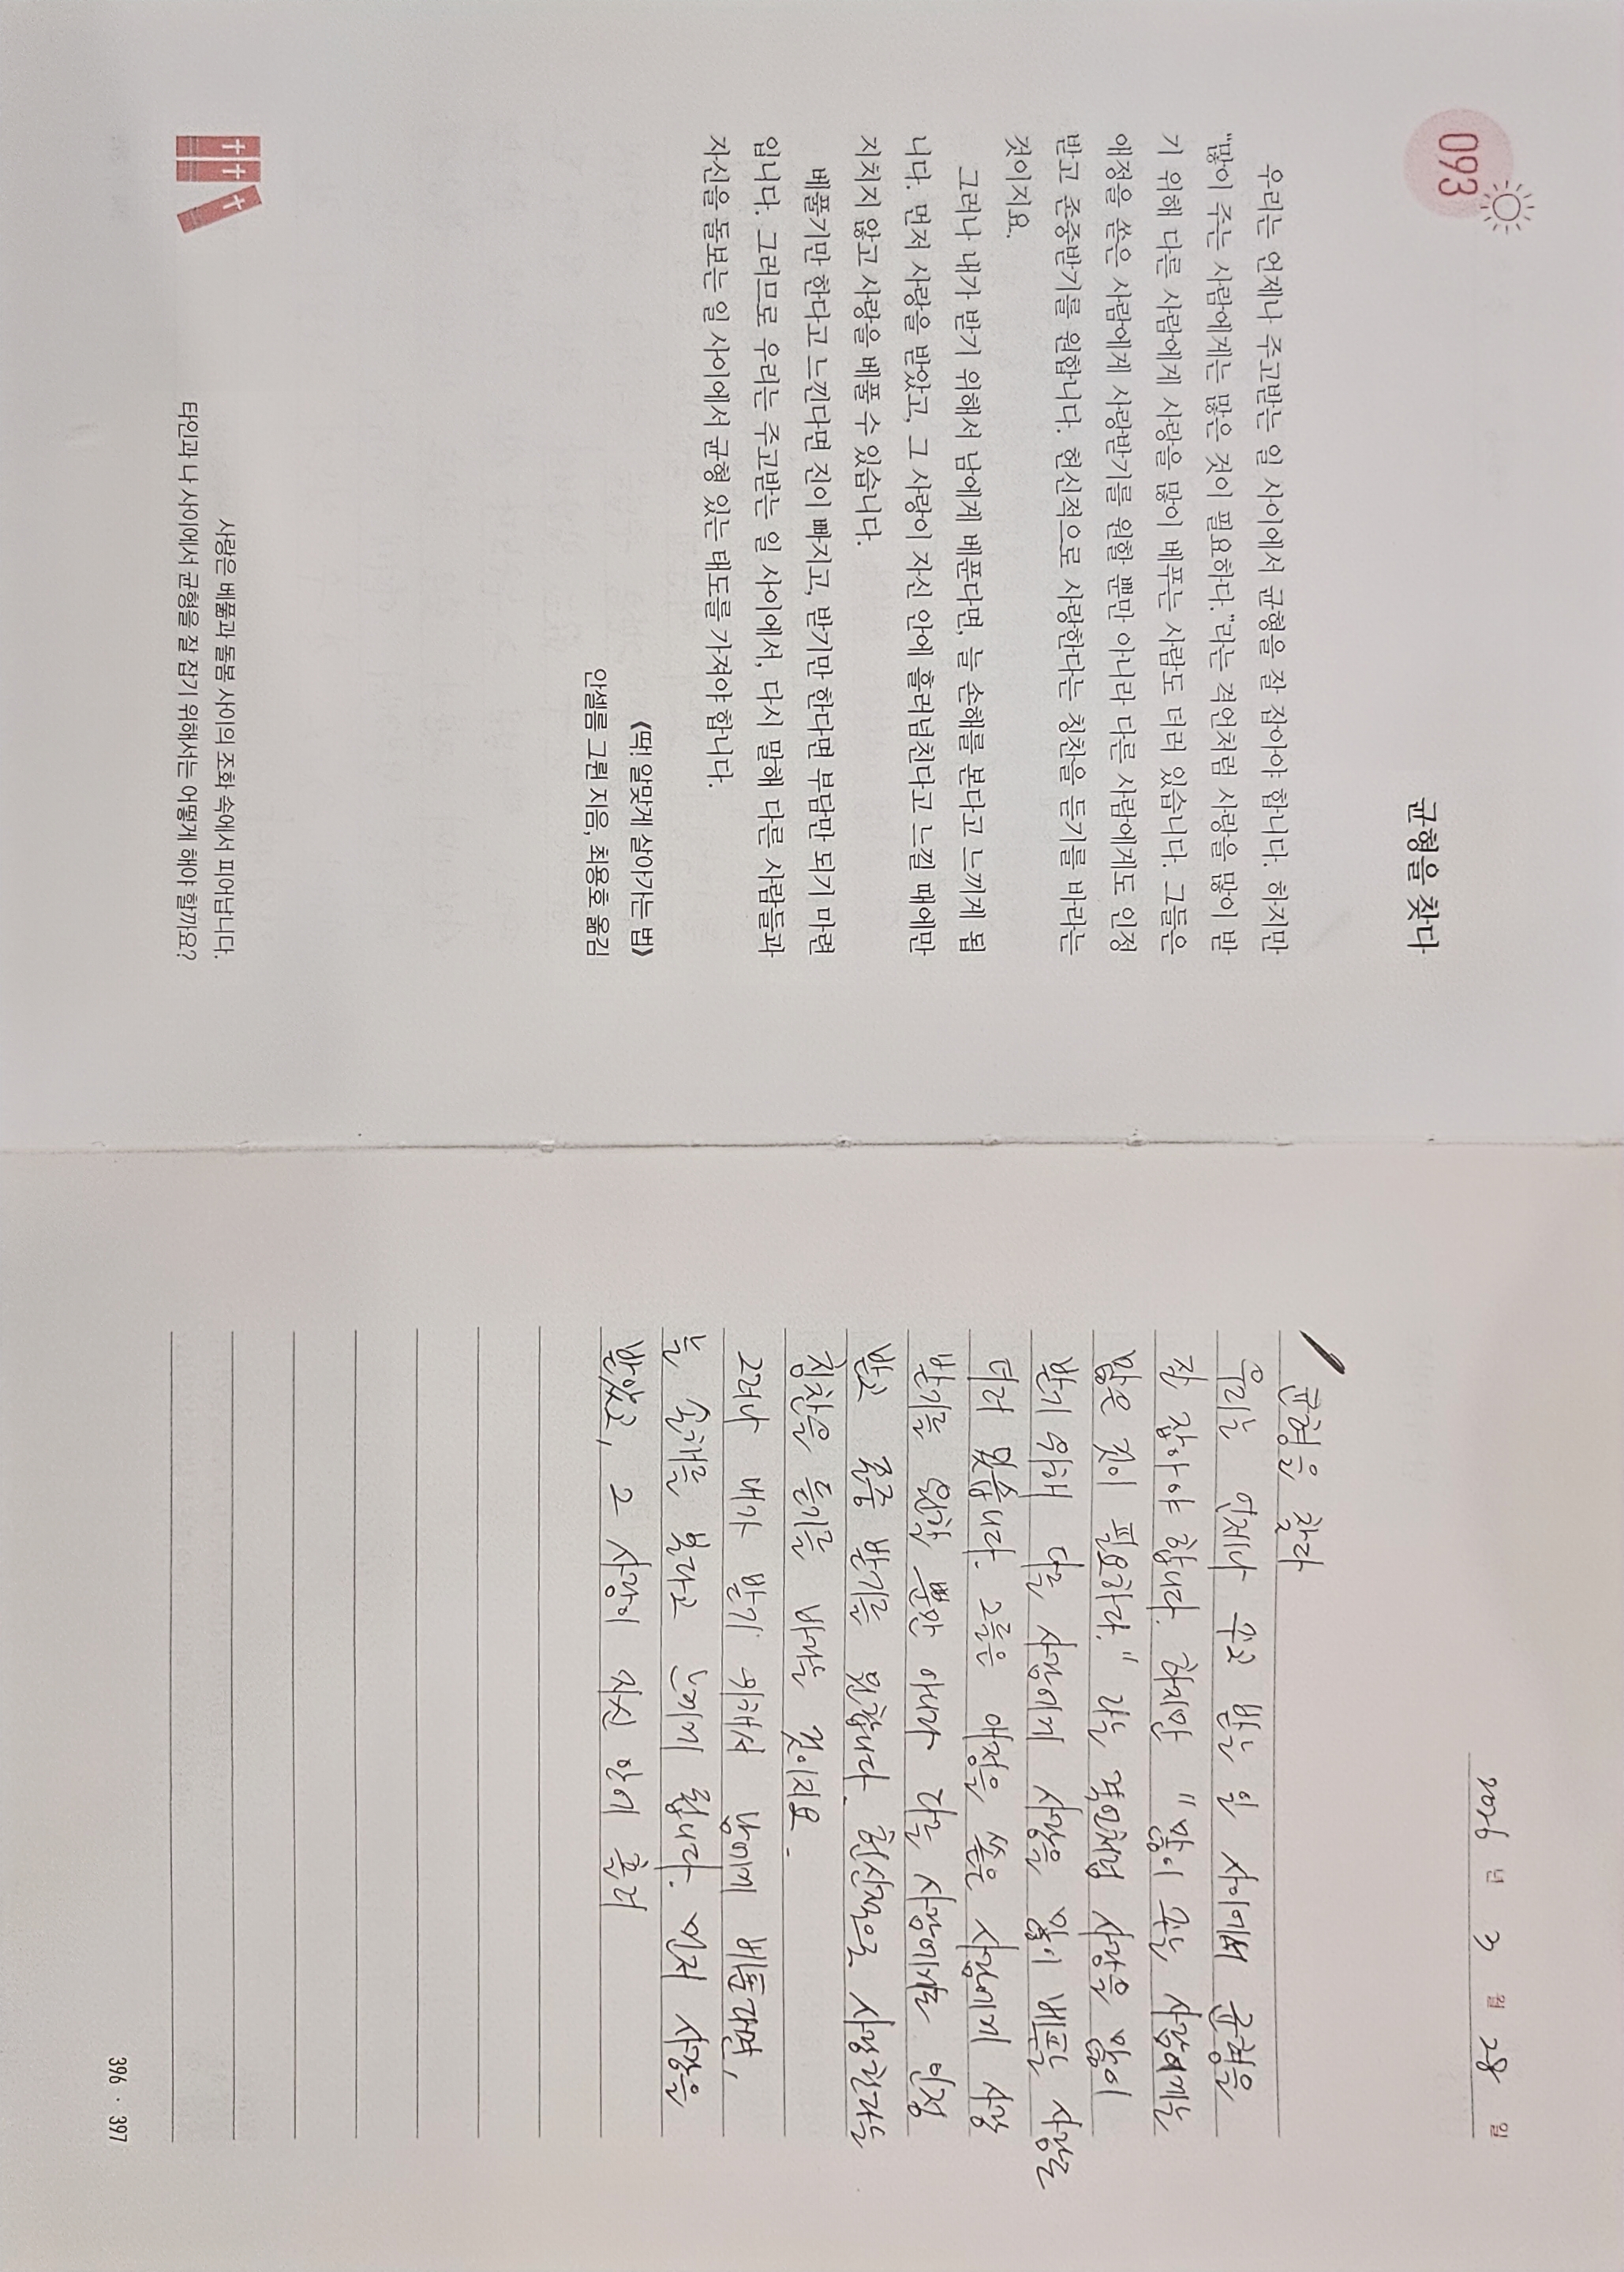 093
균형을 찾다
우리는 언제나 주고받는 일 사이에서 균형을 잘 잡아야 합니다. 하지만
"많이 주는 사람에게는 많은 것이 필요하다."라는 격언처럼 사랑을 많이 받
기 위해 다른 사람에게 사랑을 많이 베푸는 사람도 더러 있습니다. 그들은
애정을 쏟은 사람에게 사랑받기를 원할 뿐만 아니라 다른 사람에게도 인정
받고 존중받기를 원합니다. 헌신적으로 사랑한다는 칭찬을 듣기를 바라는
것이지요.
그러나 내가 받기 위해서 남에게 베푼다면, 늘 손해를 본다고 느끼게 됩
니다. 먼저 사랑을 받았고, 그 사랑이 자신 안에 흘러넘친다고 느낄 때에만
지치지 않고 사랑을 베풀 수 있습니다.
베풀기만 한다고 느낀다면 진이 빠지고, 받기만 한다면 부담만 되기 마련
입니다. 그러므로 우리는 주고받는 일 사이에서, 다시 말해 다른 사람들과
자신을 돌보는 일 사이에서 균형 있는 태도를 가져야 합니다.
《딱! 알맞게 살아가는 법》
안셀름 그륀 지음, 최용호 옮김
사랑은 베풂과 돌봄 사이의 조화 속에서 피어납니다.
타인과 나 사이에서 균형을 잘 잡기 위해서는 어떻게 해야 할까요?
2026 년 3 월 28 일
균형을 찾다
우리는 언제나 주고 받는 일 사이에서 균형을
잘 잡아야 합니다. 하지만 "많이 주는 사람에게는
많은 것이 필요하다." 라는 격언처럼 사랑을 많이
받기 위해 다른 사람에게 사랑을 많이 베푸는 사람도
더러 있습니다. 그들은 애정을 쏟은 사람에게 사랑
받기를 원할 뿐만 아니라 다른 사람에게도 인정
받고 존중 받기를 원합니다. 헌신적으로 사랑한다는
칭찬을 듣기를 바라는 것이지요.
그러나 내가 받기 위해서 남에게 베푼다면,
늘 손해를 본다고 느끼게 됩니다. 먼저 사랑을
받았고, 그 사랑이 자신 안에 흘러
396 · 397